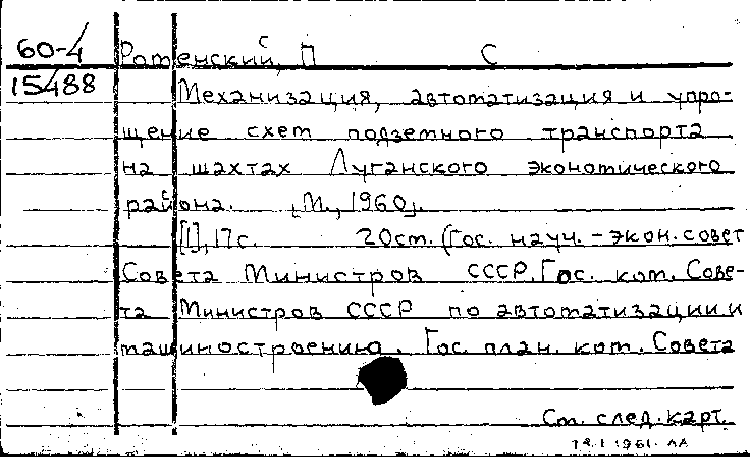 60-4
15488
Ротенский, П С
Механизация, автоматизация и упро-
щение схем подземного транспорта
на шахтах Луганского экономического
района. [М., 1960].
[1], 17 с. 20 см. (Гос. науч.-экон. совет
Совета Министров СССР. Гос. ком. Сове-
та Министров СССР по автоматизации и
машиностроению. Гос. план. ком. Совета
См. след. карт.
1961. АА